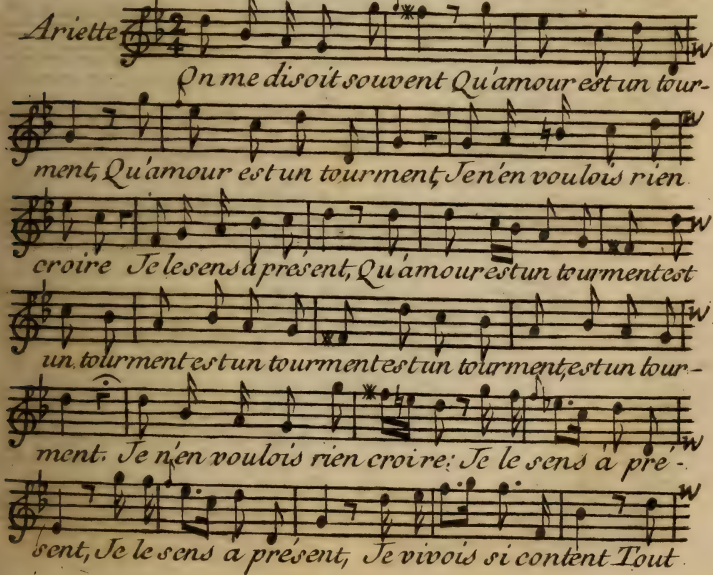 Ariette
2
4
On me disoit souvent Qu'amour est un tour-
ment, Qu'amour est un tourment, Je n'en voulois rien
croire Je le sens à présent, Qu'amour est un tourment est
un tourment est un tourment est un tourment, est un tour-
ment. Je n'en voulois rien croire: Je le sens a pré-
sent, Je le sens a présent, Je vivois si content Tout